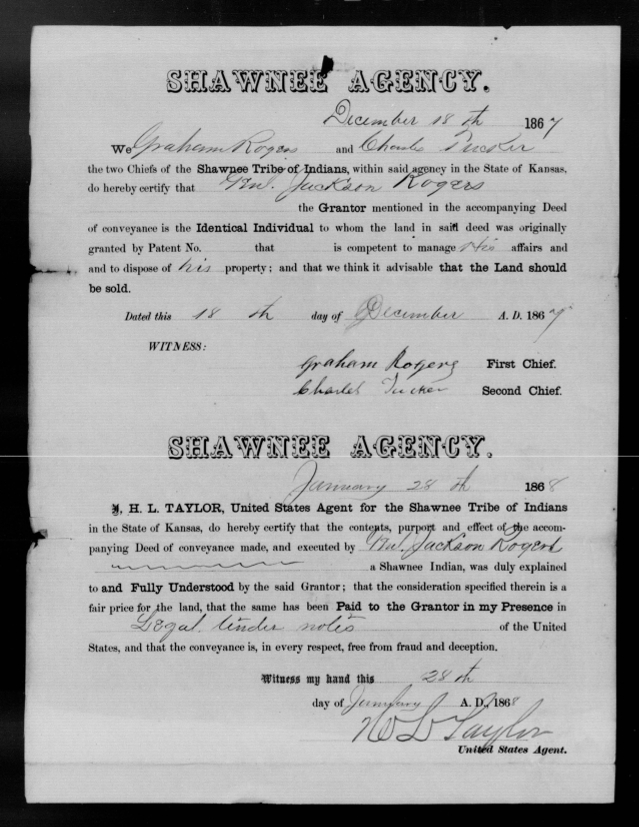 SHAWNEE AGENCY.
December 18 th 1867
We Graham Rogers and Charles Tucker
the two Chiefs of the Shawnee Tribe of Indians, within said agency in the State of Kansas,
do hereby certify that Wm. Jackson Rogers
the Grantor mentioned in the accompanying Deed
of conveyance is the Identical Individual to whom the land in said deed was originally
granted by Patent No. that is competent to manage His affairs and
and to dispose of his property; and that we think it advisable that the Land should
be sold.
Dated this 18 th day of December A. D. 1867
WITNESS:
Graham Rogers First Chief.
Charles Tucker Second Chief.
SHAWNEE AGENCY.
January 28 th 1868
I, H. L. TAYLOR, United States Agent for the Shawnee Tribe of Indians
in the State of Kansas, do hereby certify that the contents, purport and effect of the accom-
panying Deed of conveyance made, and executed by Wm. Jackson Rogers
a Shawnee Indian, was duly explained
to and Fully Understood by the said Grantor; that the consideration specified therein is a
fair price for the land, that the same has been Paid to the Grantor in my Presence in
Legal tender notes of the United
States, and that the conveyance is, in every respect, free from fraud and deception.
Witness my hand this 28 th
day of January A. D., 1868
H L Taylor
United States Agent.